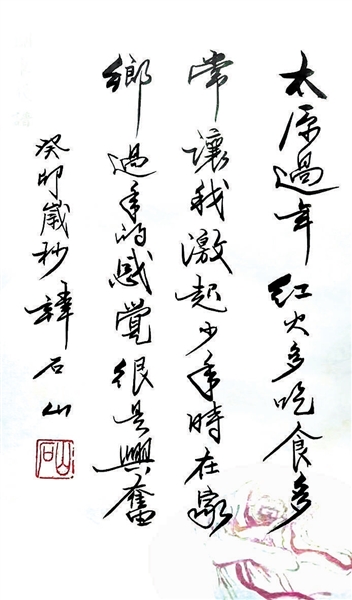 太原過年 红火多吃食多
常讓我激起少年時在家
鄉過年的感覺很是興奮
癸卯歲杪韓石山
石山